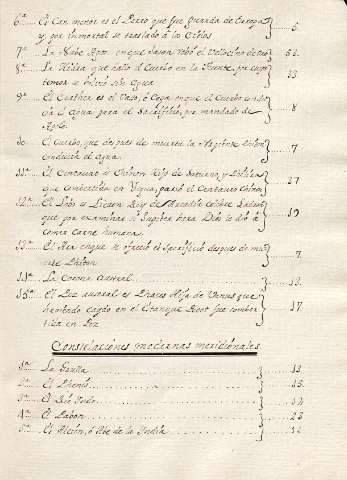 6ª El Can menor es el Perro que fue guarda de Europa y por inmortal se traslado á los Cielos 5
7ª La Nabe Argos, en que Jason robó el Vellocino de oro 56
8ª La Hidra que halló el Cuerbo en la Fuente, por cuyo temor se bolvió sin Agua 33
9ª El Cratera es el Vaso, ó Copa en que el Cuerbo
ia el Agua para el Sacrificio, por mandado de
Apolo 8
10 El Cuerbo, que despues de muerta la Serpiente Phiton
conducia el Agua 7
11ª El Centauro ó Chiron Hijo de Saturno, y Philira
que convertida en Yegua, parió el Centauro Chiron 27
12ª El Lobo ó Licaon Rey de
que por examinar si Jupiter hera Dios le dió á
comer carne humana 19
13ª El Ara en que se ofreció el Sacrificio despues de mu
erto Phiton 7
14ª La Corona Austral 13
15ª El Pez austral es Phaces Hija de Venus que
haviendo caydo en el Estanque Boet fue combertida en Pez 17
Constelaciones modernas meridionales
1ª La Grulla 13
2ª El Phenis 15
3ª El Indo 12
4ª El Pabon 23
5ª El ó Abe de la Yndia 12